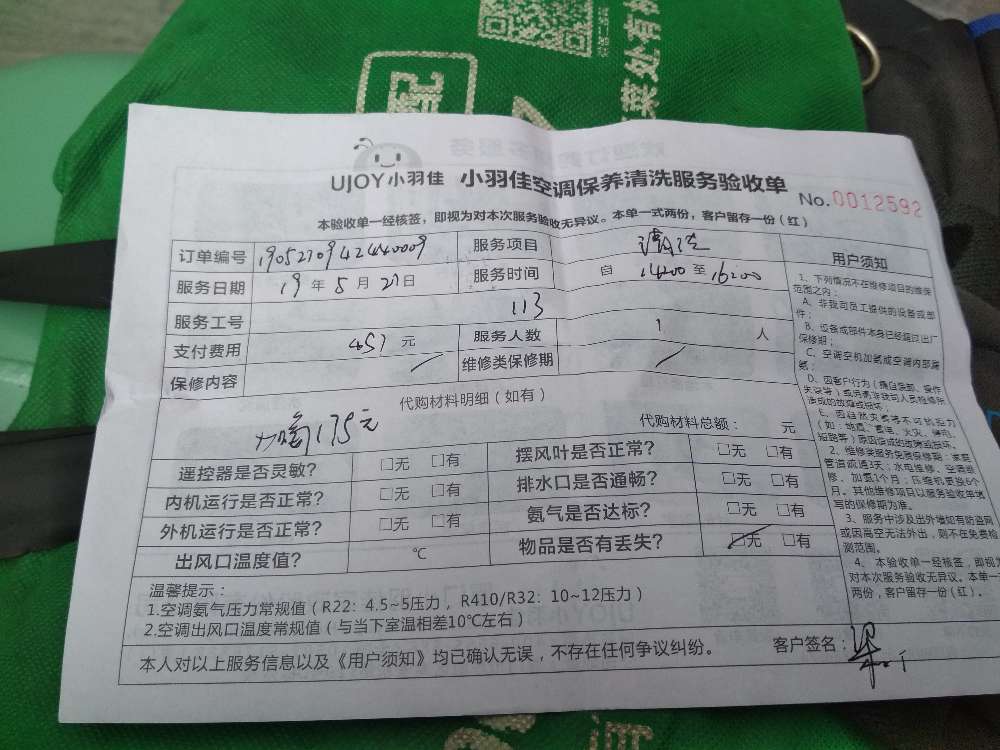 配
菜处有
UJOY小羽佳 小羽佳空调保养清洗服务验收单
No.0012592
本验收单一经核签,即视为对本次服务验收无异议。本单一式两份,客户留存一份(红)
订单编号 服务项目 清洗
服务日期 19年5月27日 服务时间 自 14:00 至 16:00
服务工号 113
支付费用 457 元 服务人数 1 人
保修内容 维修类保修期
代购材料明细(如有)
175元 代购材料总额: 元
遥控器是否灵敏? □无 □有 摆风叶是否正常? □无 □有
内机运行是否正常? □无 □有 排水口是否通畅? □无 □有
外机运行是否正常? □无 □有 氨气是否达标? □无 □有
出风口温度值? ℃ 物品是否有丢失? □无 □有
温馨提示:
1.空调氨气压力常规值(R22: 4.5~5压力, R410/R32: 10~12压力)
2.空调出风口温度常规值(与当下室温相差10℃左右)
本人对以上服务信息以及《用户须知》均已确认无误,不存在任何争议纠纷。 客户签名:
用户须知
1、下列情况不在维修项目的维保
范围之内:
A、非我司员工提供的设备或部
件;
B、设备或部件本身已经超过出厂
保修期;
C、空调空机加氨或空调内部漏
氨;
D、因客户行为(擅自装卸、操作
失误等)或因非我司人员检修所
造成的故障或损坏;
E、因自然灾害等不可抗拒力
(如:地震、雷电、火灾、
短路等)原因造成的故障或损坏。
2、维修类服务免费保修期:家庭
管道疏通3天;水电维修、空调维
修、加氨1个月;压缩机更换6个
月。其他维修项目以服务验收单填
写的保修期为准。
3、服务中涉及出外墙如有防盗网
或因高空无法外出,则不在免费检
测范围。
4、本验收单一经核签,即视为
对本次服务验收无异议。本单一
式两份,客户留存一份(红)。